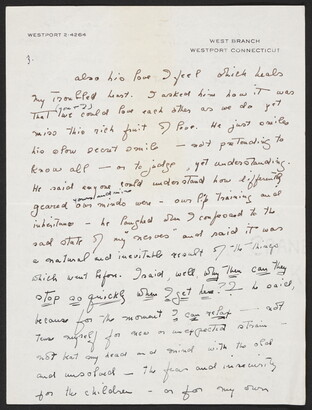 WESTPORT 2-4264
WEST BRANCH
WESTPORT CONNECTICUT
3.
also his love I feel which heals
my troubled heart. I asked him how it was
that you & I could love each other as we do yet
miss this rich fruit of love. He just smiles
his slow secret smile — not pretending to
know all — or to judge, yet understanding.
He said anyone could understand how differently
geared our minds were - our life training and
yours and mine
inheritance - he laughed when I confessed to the
sad state of my "nerves" and said it was
a natural and inevitable result of the things
which went before. I said, well, why then can they
stop so quickly when I get here?? — he said,
because for the moment I can relax — not
tense myself for new or unexpected strain -
not beat my head and mind with the old
and unsolved — the fear and insecurity
for the children - or for my own